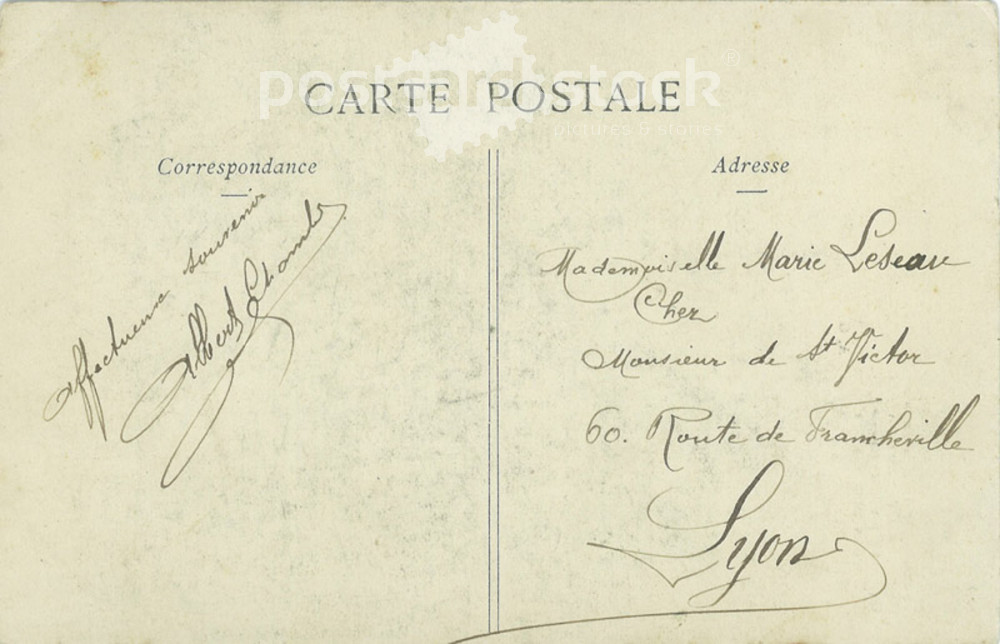 postcard stock®
pictures & stories
CARTE POSTALE
Correspondance
Affectueux souvenir
Albert
Adresse
Mademoiselle Marie Leseau
Chez
Monsieur de St Victor
60. Route de Francheville
Lyon